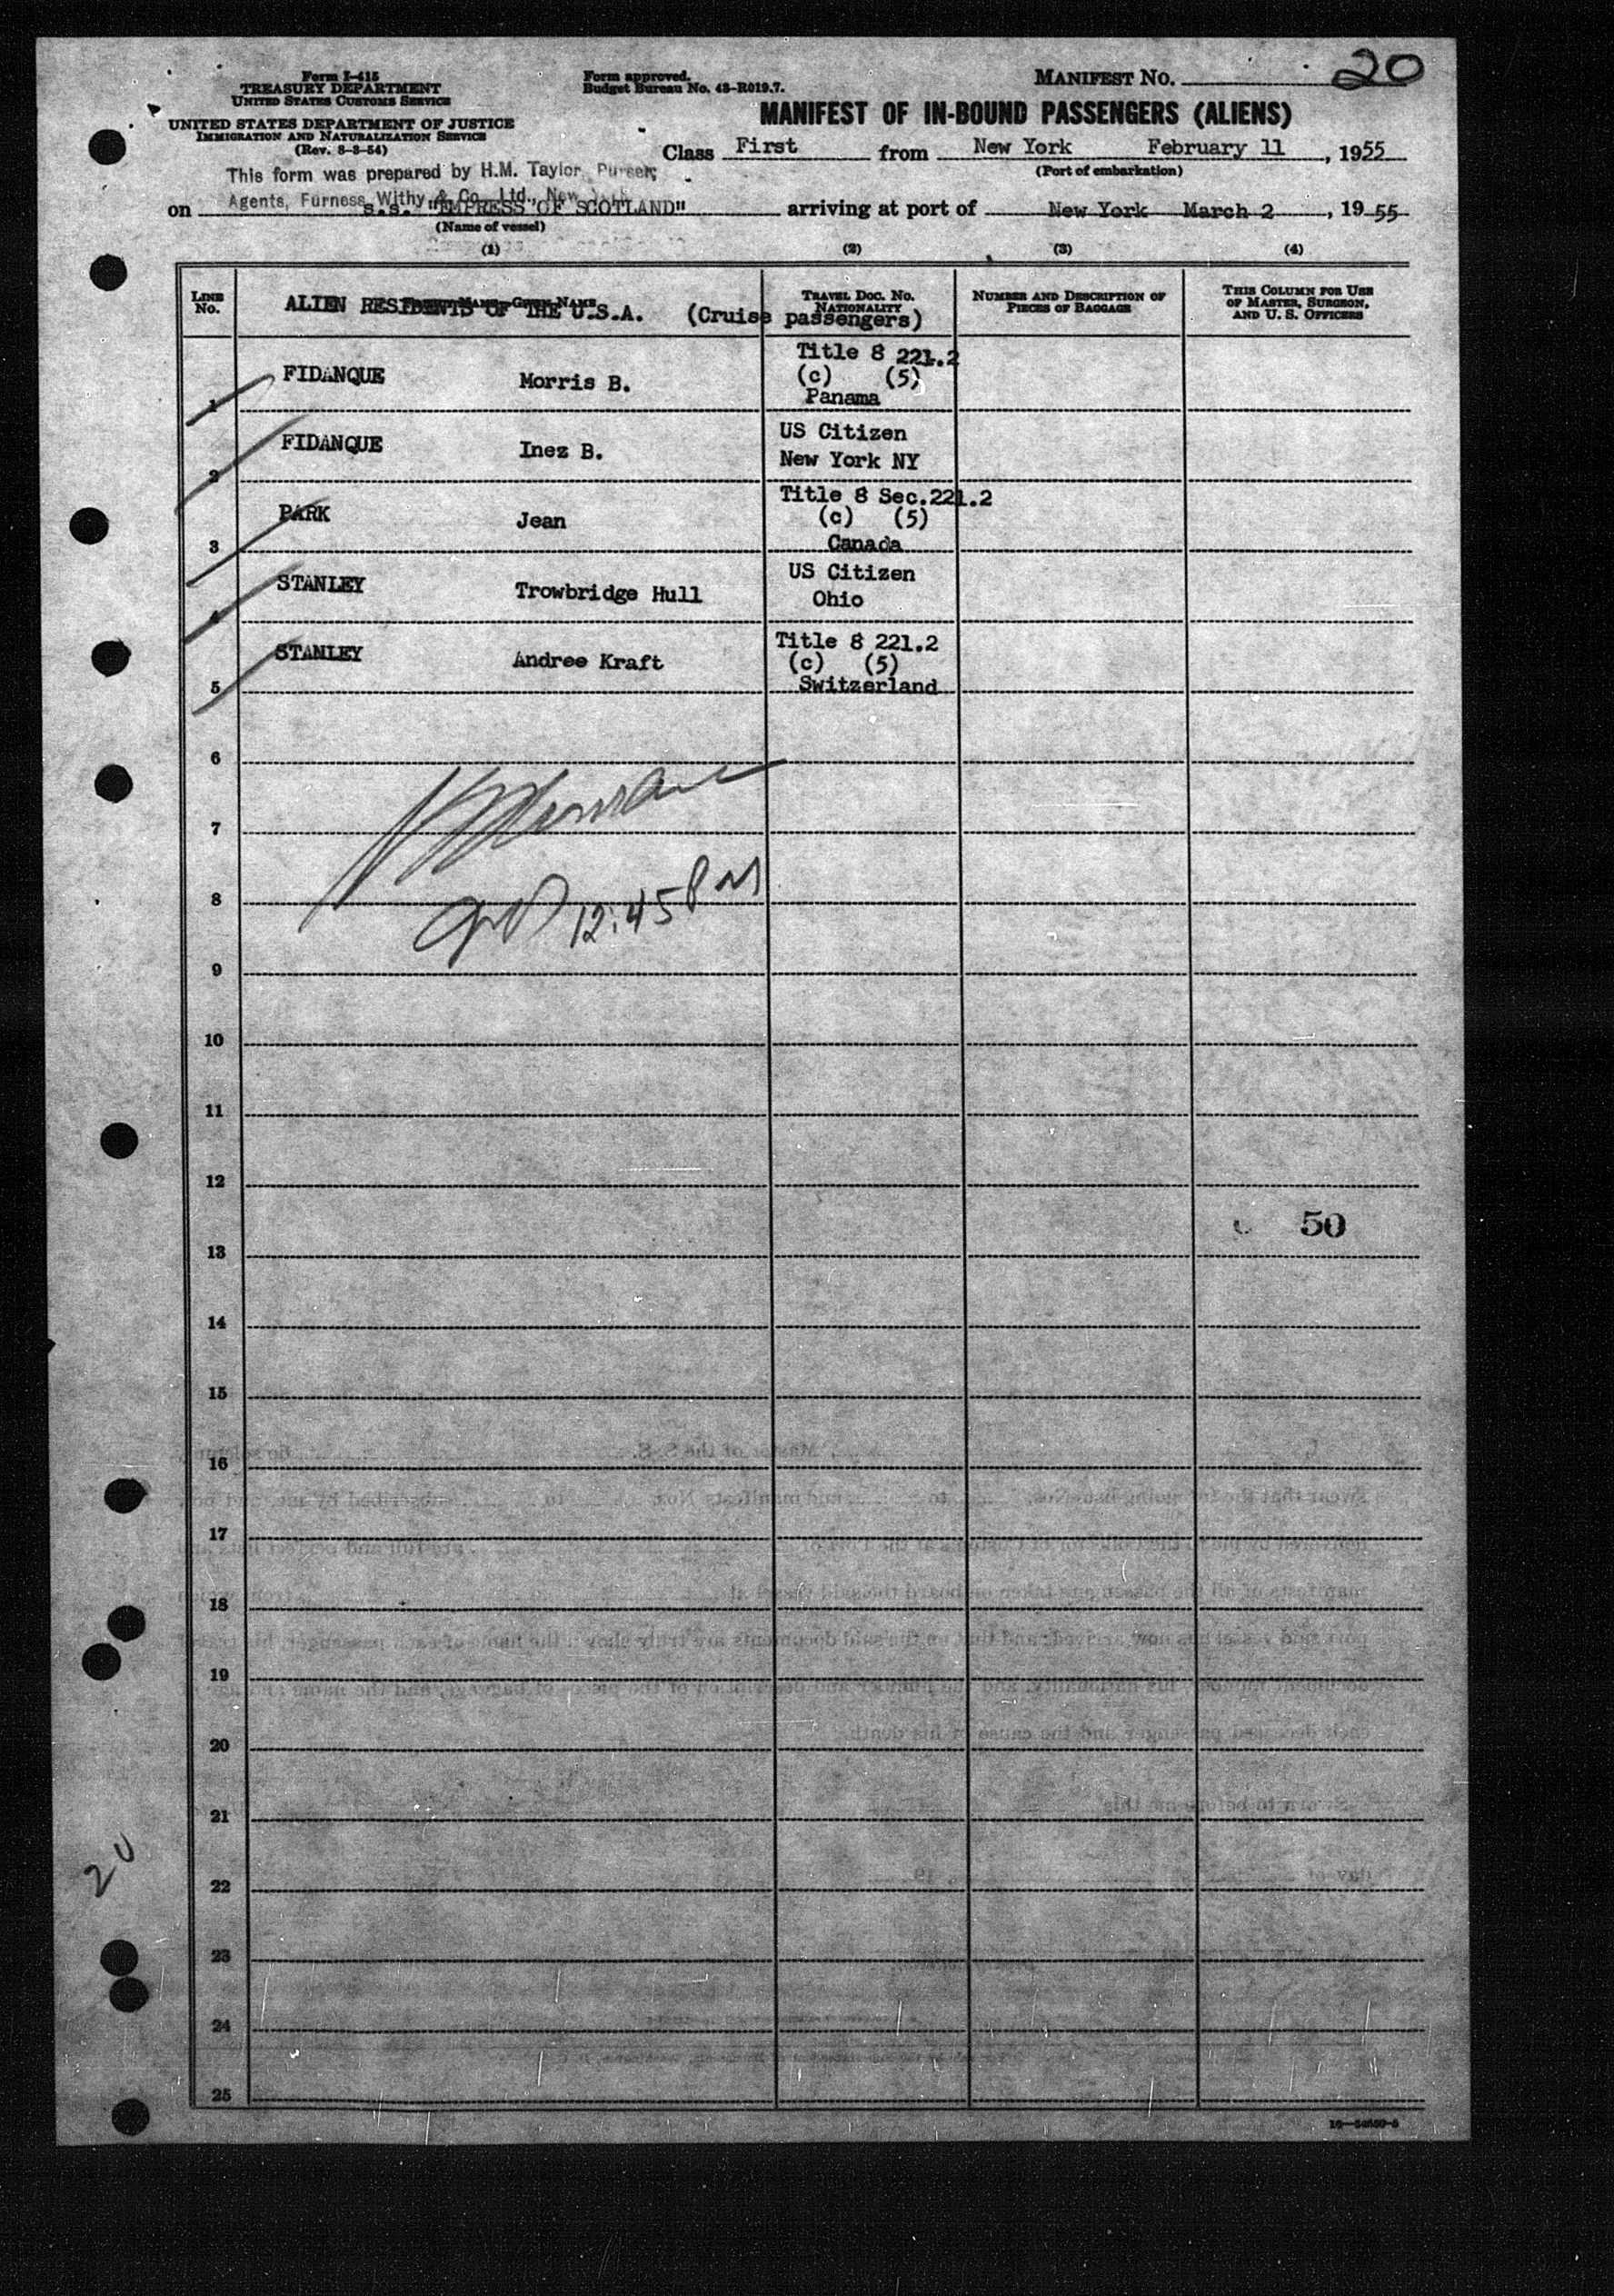 Form I-415
TREASURY DEPARTMENT
UNITED STATES CUSTOMS SERVICE
UNITED STATES DEPARTMENT OF JUSTICE
IMMIGRATION AND NATURALIZATION SERVICE
(Rev. 8-3-54)
Form approved.
Budget Bureau No. 43-R019.7.
MANIFEST NO. 20
MANIFEST OF IN-BOUND PASSENGERS (ALIENS)
Class First from New York February 11, 1955
(Port of embarkation)
This form was prepared by H.M. Taylor, Purser,
Agents, Furness Withy & Co., Ltd., New York
on s.s. "EMPRESS OF SCOTLAND" arriving at port of New York March 2, 1955
(Name of vessel)
(1) (2) (3) (4)
LINE No. FAMILY NAME—GIVEN NAME TRAVEL DOC. NO. NATIONALITY NUMBER AND DESCRIPTION OF PIECES OF BAGGAGE THIS COLUMN FOR USE OF MASTER, SURGEON, AND U. S. OFFICERS
ALIEN RESIDENTS OF THE U.S.A. (Cruise passengers)
1 FIDANQUE Morris B. Title 8 221.2 (c) (5) Panama
2 FIDANQUE Inez B. US Citizen New York NY
3 PARK Jean Title 8 Sec.221.2 (c) (5) Canada
4 STANLEY Trowbridge Hull US Citizen Ohio
5 STANLEY Andree Kraft Title 8 221.2 (c) (5) Switzerland
6
7
8 12:45 PM
9
10
11
12
50
13
14
15
16
17
18
19
20
21
20
22
23
24
25